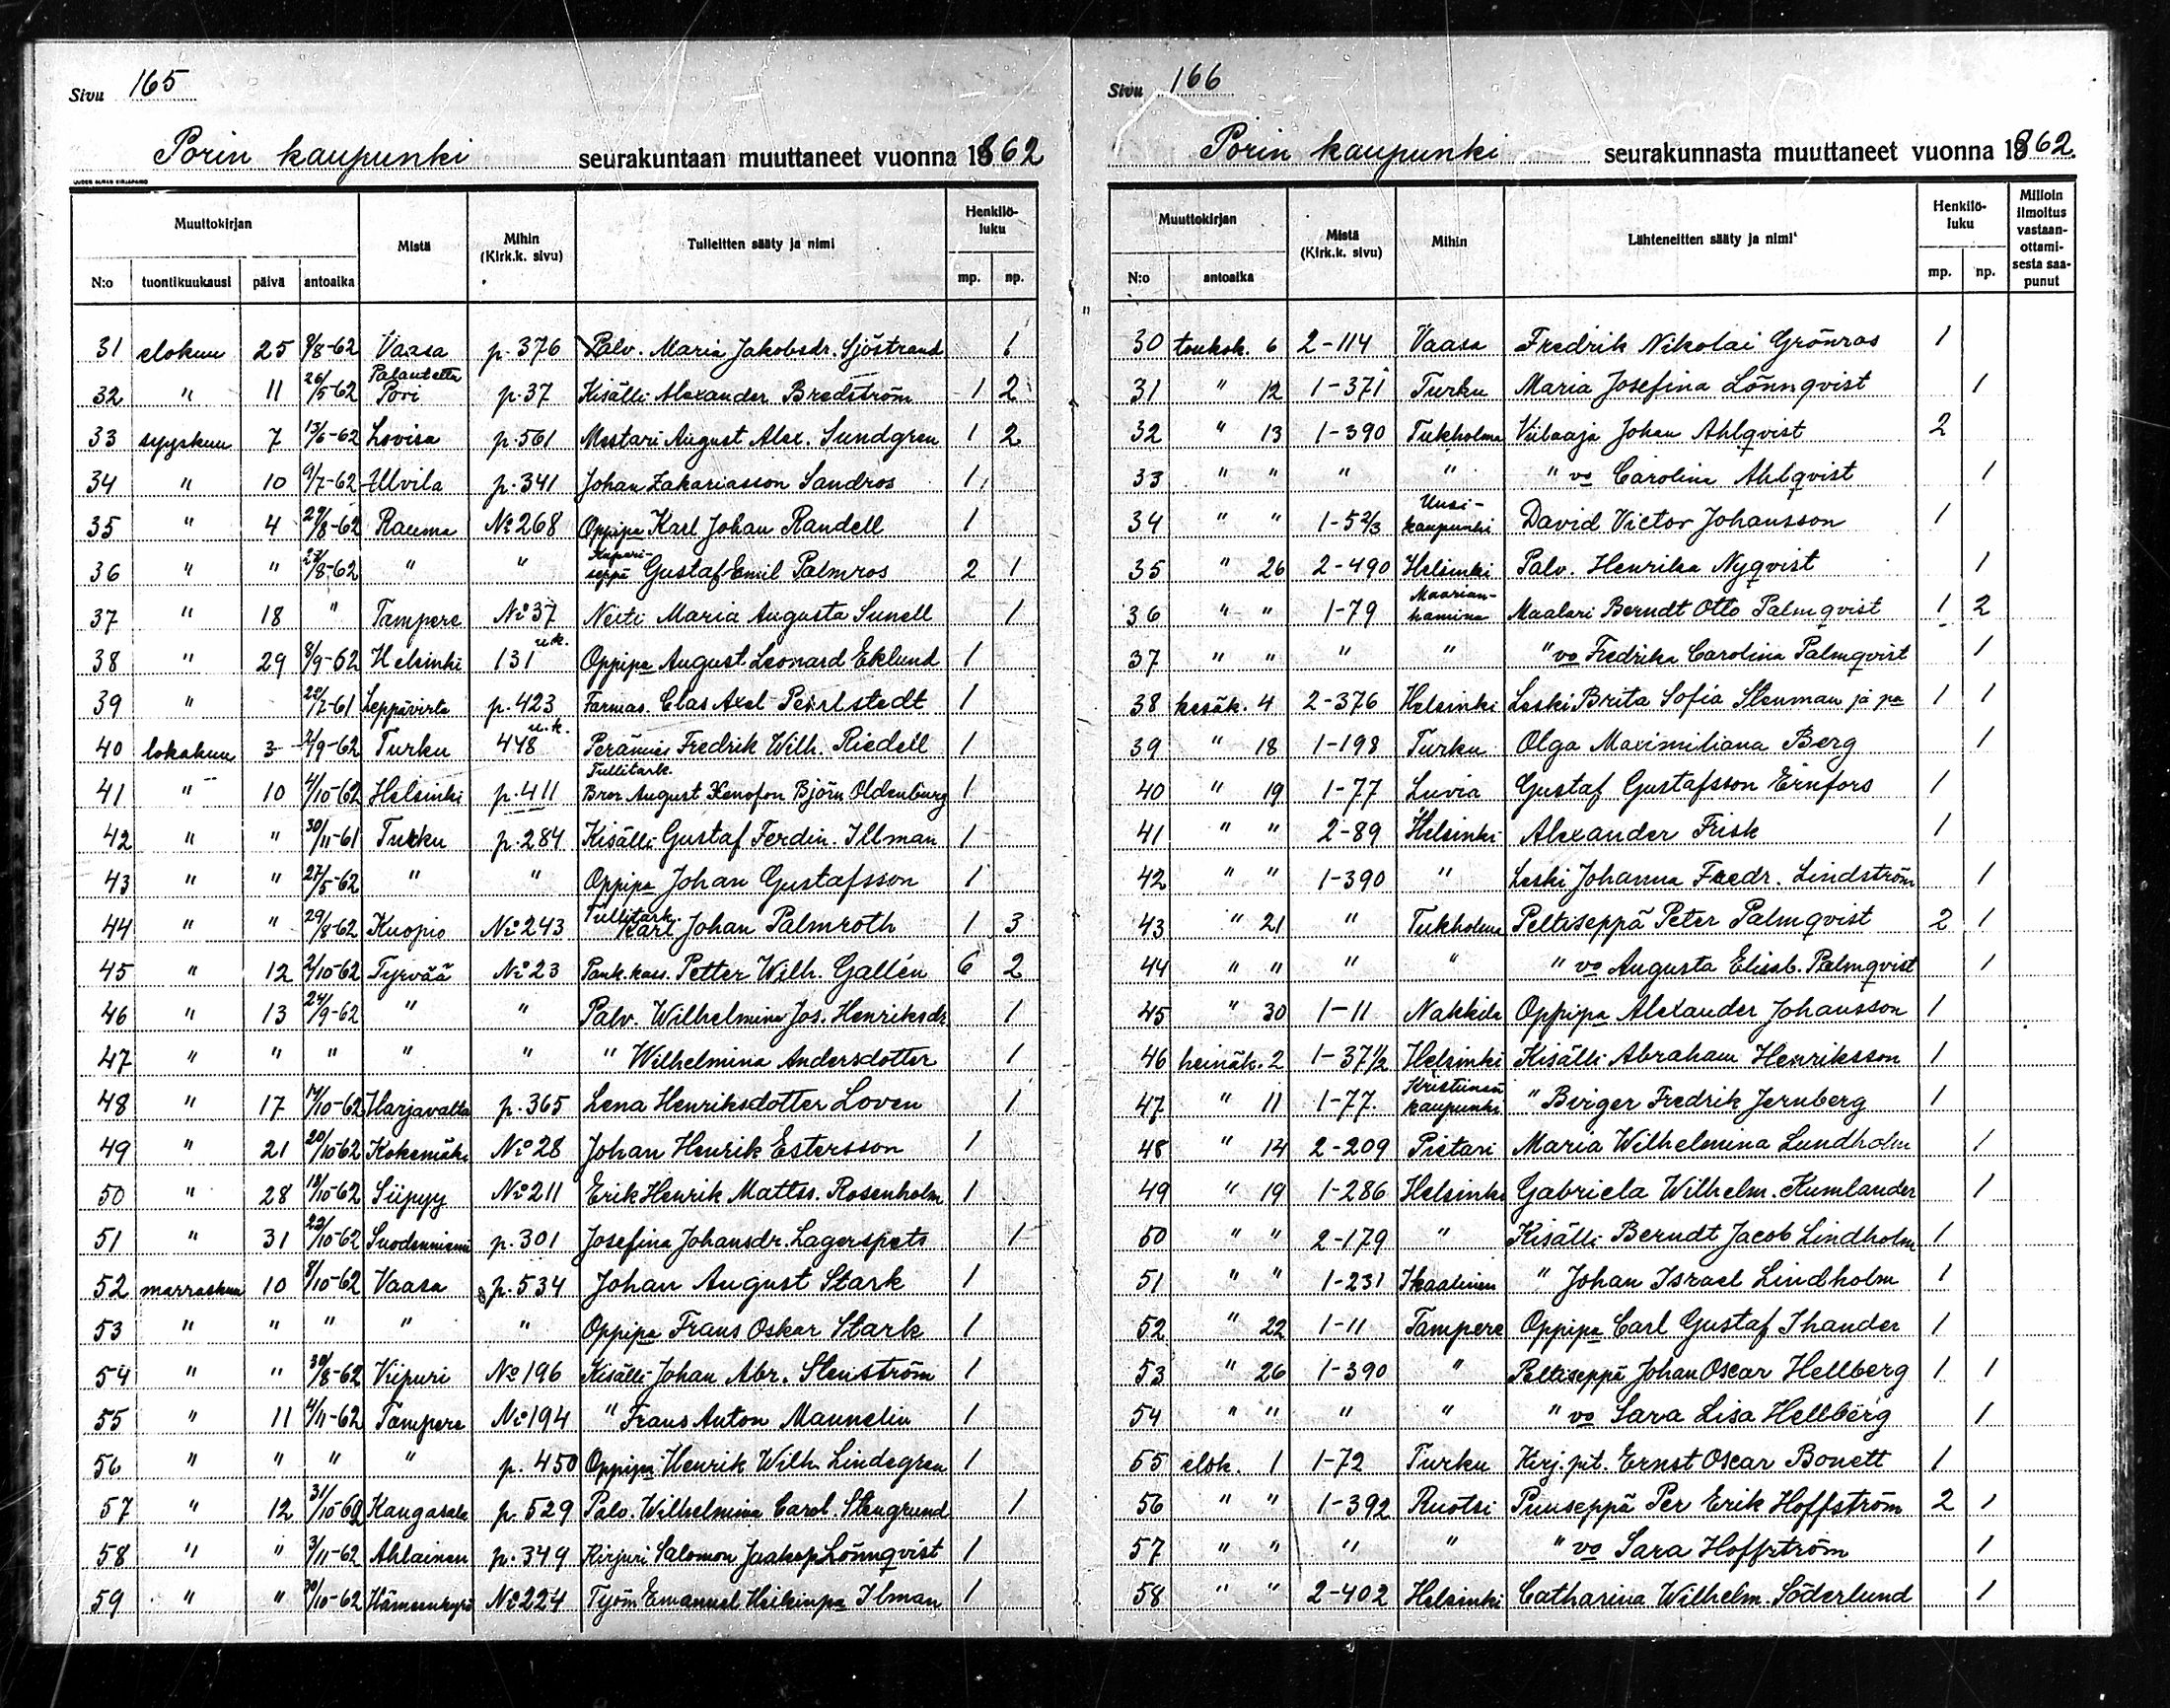 Sivu 165
Porin kaupunki seurakuntaan muuttaneet vuonna 1862
UUDEN AURAN KIRJAPAINO
Muuttokirjan Mistä Mihin (Kirk.k. sivu) Tulleitten sääty ja nimi Henkilö-luku
N:o tuontikuukausi päivä antoaika mp. np.
31 elokuu 25 9/8-62 Vaasa p. 376 Palv. Maria Jakobsdr. Sjöstrand 1
32 " 11 26/5-62 Palautettu Pori p. 37 Kisälli Alexander Bredström 1 2
33 syyskuu 7 13/6-62 Lovisa p. 561 Mestari August Alex. Sundgren 1 2
34 " 10 9/7-62 Ulvila p. 341 Johan Zakariasson Sandros 1
35 " 4 29/8-62 Rauma No 268 Oppipa Karl Johan Randell 1
36 " " 27/8-62 " " Kupari-seppä Gustaf Emil Palmros 2 1
37 " 18 " Tampere No 37 Neiti Maria Augusta Sunell 1
38 " 29 8/9-62 Helsinki 131 u.k. Oppipa August Leonard Eklund 1
39 " 22/7-61 Leppävirta p. 423 Farmas. Clas Axel Perlstedt 1
40 lokakuu 3 2/9-62 Turku 448 u.k. Perämies Fredrik Wilh. Riedell 1
41 " 10 4/10-62 Helsinki p. 411 Tullitark. Bror August Xenofon Björn Oldenburg 1
42 " " 30/11-61 Turku p. 284 Kisälli Gustaf Ferdin. Illman 1
43 " " 27/5-62 " " Oppipa Johan Gustafsson 1
44 " " 29/8-62 Kuopio No 243 Tullitark. Karl Johan Palmroth 1 3
45 " 12 2/10-62 Tyrvää No 23 Pank.kass. Petter Wilh. Gallén 6 2
46 " 13 24/9-62 " " Palv. Wilhelmina Jos. Henriksdr 1
47 " " " " " " Wilhelmina Andersdotter 1
48 " 17 14/10-62 Harjavalta p. 365 Lena Henriksdotter Loven 1
49 " 21 20/10-62 Kokemäki No 28 Johan Henrik Estersson 1
50 " 28 18/10-62 Siipyy No 211 Erik Henrik Mattss. Rosenholm 1
51 " 31 22/10-62 Suodenniemi p. 301 Josefina Johansdr. Lagerspets 1
52 marraskuu 10 8/10-62 Vaasa p. 534 Johan August Stark 1
53 " " " " " Oppipa Frans Oskar Stark 1
54 " " 30/8-62 Viipuri No 196 Kisälli Johan Abr. Stenström 1
55 " 11 4/11-62 Tampere No 194 " Frans Anton Maunelin 1
56 " " " " p. 450 Oppipa Henrik Wilh. Lindegren 1
57 " 12 31/10-62 Kangasala p. 529 Palv. Wilhelmina Carol. Stengrund 1
58 " " 3/11-62 Ahlainen p. 349 Kirjuri Salomon Jaakop Lönnqvist 1
59 " " 30/10-62 Hämeenkyrö No 224 Työm Emanuel Heikinpa Ilman 1
Sivu 166
Porin kaupunki seurakunnasta muuttaneet vuonna 1862.
Muuttokirjan Mistä (Kirk.k. sivu) Mihin Lähteneitten sääty ja nimi Henkilö-luku Milloin ilmoitus vastaan-ottami-sesta saa-punut
N:o antoaika mp. np.
30 toukok. 6 2-114 Vaasa Fredrik Nikolai Grönros 1
31 " 12 1-371 Turku Maria Josefina Lönnqvist 1
32 " 13 1-390 Tukholma Viilaaja Johan Ahlqvist 2
33 " " " " " vo Carolina Ahlqvist 1
34 " " 1-52/3 Uusi-kaupunki David Victor Johansson 1
35 " 26 2-490 Helsinki Palv. Henrika Nyqvist 1
36 " " 1-79 Maarian-hamina Maalari Berndt Otto Palmqvist 1 2
37 " " " " " vo Fredrika Carolina Palmqvist 1
38 kesäk. 4 2-376 Helsinki Leski Brita Sofia Stenman ja pa 1 1
39 " 18 1-198 Turku Olga Maximiliana Berg 1
40 " 19 1-77 Luvia Gustaf Gustafsson Ernfors 1
41 " " 2-89 Helsinki Alexander Frisk 1
42 " " 1-390 " Leski Johanna Fredr. Lindström 1
43 " 21 " Tukholma Peltiseppä Peter Palmqvist 2 1
44 " " " " " vo Augusta Elisab. Palmqvist 1
45 " 30 1-11 Nakkila Oppipa Alexander Johansson 1
46 heinäk. 2 1-371/2 Helsinki Kisälli Abraham Henriksson 1
47 " 11 1-77. Kristiinan kaupunki " Birger Fredrik Jernberg 1
48 " 14 2-209 Pietari Maria Wilhelmina Lundholm 1
49 " 19 1-286 Helsinki Gabriela Wilhelm. Kumlander 1
50 " " 2-179 " Kisälli Berndt Jacob Lindholm 1
51 " " 1-231 Ikaalinen " Johan Israel Lindholm 1
52 " 22 1-11 Tampere Oppipa Carl Gustaf Ihander 1
53 " 26 1-390 " Peltiseppä Johan Oscar Hellberg 1 1
54 " " " " " vo Sara Lisa Hellberg 1
55 elok. 1 1-72 Turku Kirj.pit. Ernst Oscar Bonett 1
56 " " 1-392 Ruotsi Puuseppä Per Erik Hoffström 2 1
57 " " " " " vo Sara Hoffström 1
58 " " 2-402 Helsinki Catharina Wilhelm. Söderlund 1